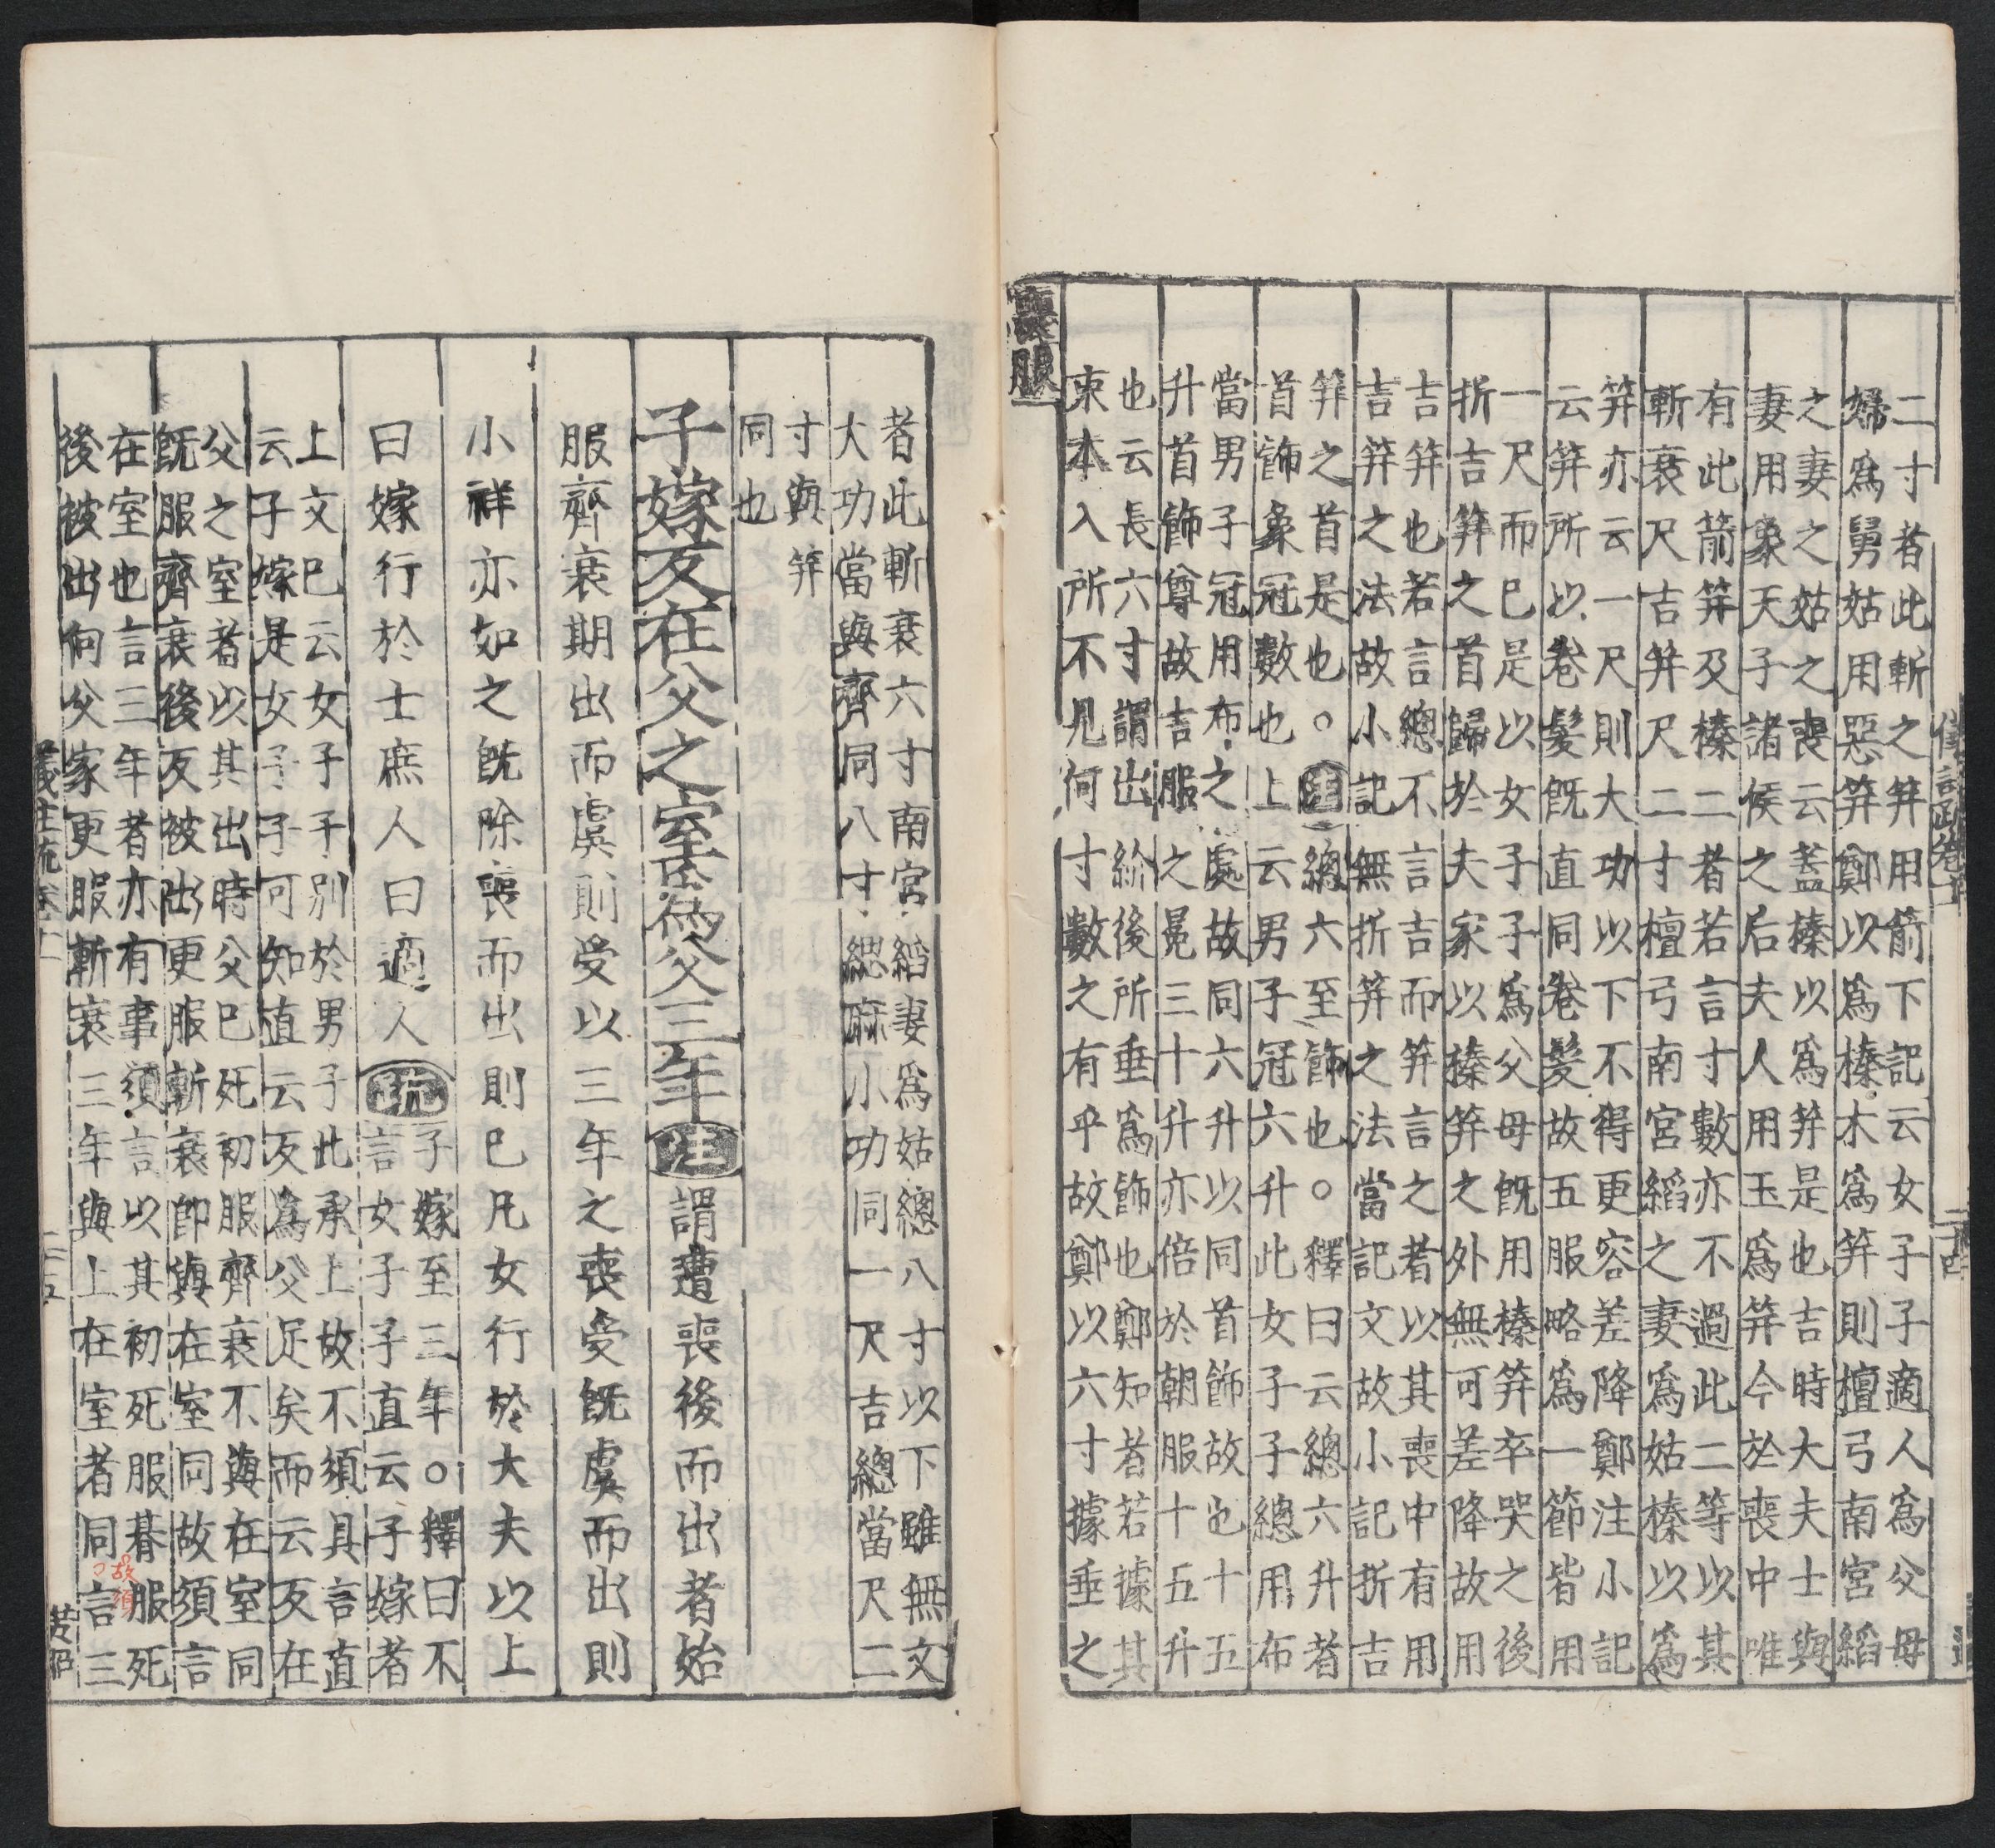 二寸者此斬之筓用箭下記云女子子適人爲父母
婦爲舅姑用惡筓鄭以爲榛木爲筓則檀弓南宮縚
之妻之姑之喪云蓋榛以爲筓是也吉時大夫士與
妻用象天子諸侯之后夫人用玉爲筓今於喪中唯
有此箭筓及榛二者若言寸數亦不過此二等以其
斬衰尺吉筓尺二寸檀弓南宮縚之妻爲姑榛以爲
筓亦云一尺則大功以下不得更容差降鄭注小記
云筓所以卷髮旣直同卷髮故五服略爲一節皆用
一尺而已是以女子子爲父母旣用榛筓卒哭之後
折吉筓之首歸於夫家以榛筓之外無可差降故用
吉筓也若言緫不言吉而筓言之者以其喪中有用
吉筓之法故小記無折筓之法當記文故小記折吉
筓之首是也。注緫六至飾也。釋曰云緫六升者
首飾象冠數也上云男子冠六升此女子子緫用布
當男子冠用布之處故同六升以同首飾故也十五
升首飾尊故吉服之冕三十升亦倍於朝服十五升
也云長六寸謂出紒後所垂爲飾也鄭知者若據其
束本入所不見何寸數之有乎故鄭以六寸據垂之
喪服
者此斬衰六寸南宮縚妻爲姑緫八寸以下雖無文
大功當與齊同八寸緦麻小功同一尺吉緫當尺二
寸與筓
同也
子嫁反在父之室爲父三年注謂遭喪後而出者始
服齊衰期出而虞則受以三年之喪受旣虞而出則
小祥亦如之旣除喪而出則已凡女行於大夫以上
曰嫁行於士庶人曰適人疏子嫁至三年。釋曰不
言女子子直云子嫁者
上文已云女子子別於男子此承上故不須具言直
云子嫁是女子子可知直云反爲父足矣而云反在
父之室者以其出時父已死初服齊衰不與在室同
旣服齊衰後反被出更服斬衰卽與在室同故須言
在室也言三年者亦有事須言以其初死服朞服死
後被出向父家更服斬衰三年與上在室者同言三
故須